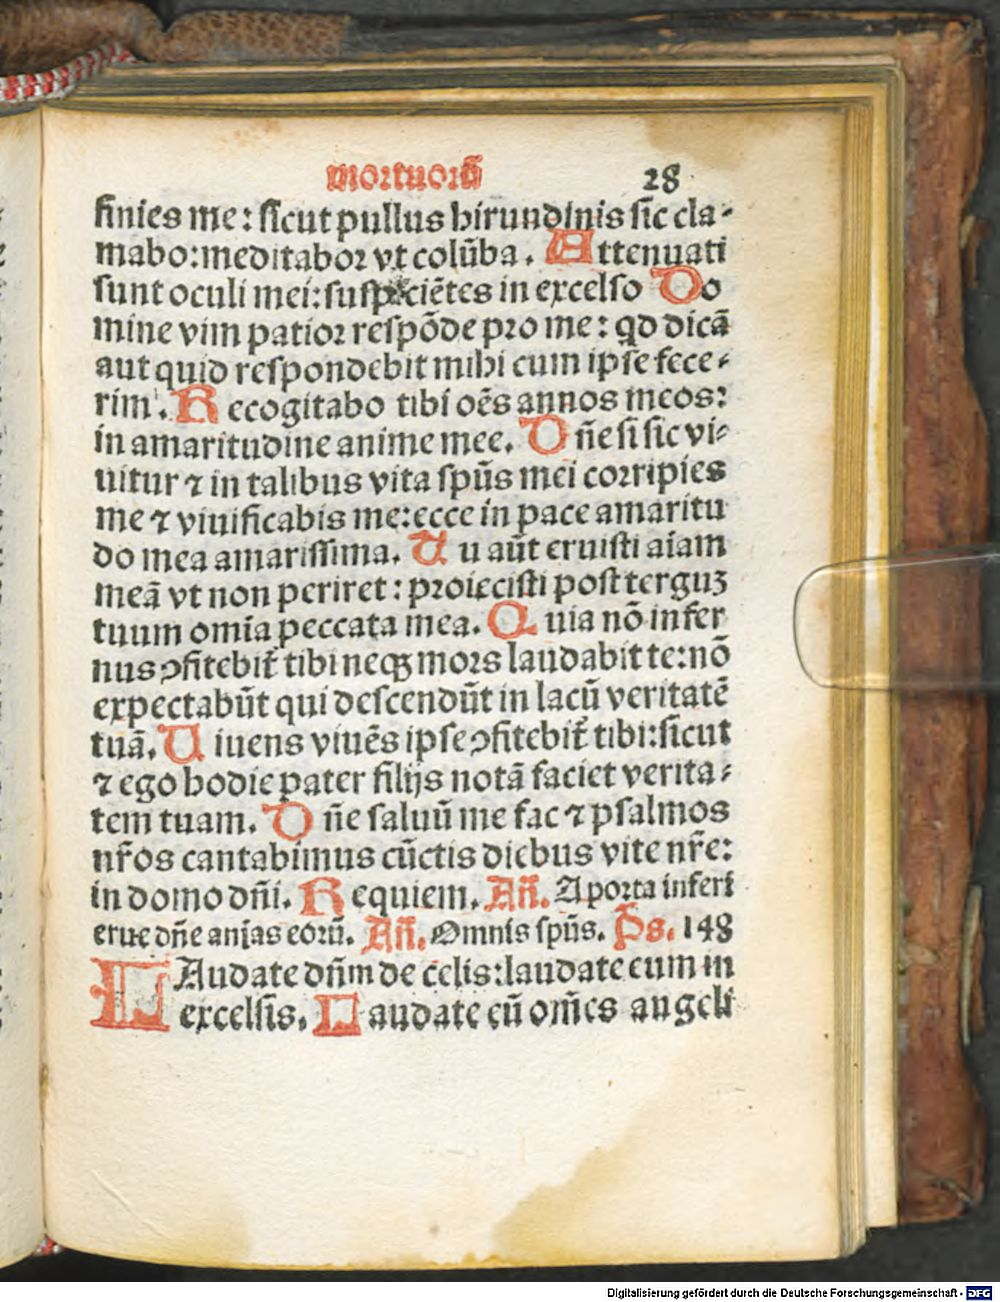 mortuorū 28
finies me: sicut pullus hirundinis sic cla⸗
mabo: meditabor vt colūba. Attenuati
sunt oculi mei: suspiciētes in excelso Do
mine vim patior respōde pro me: qd dicā
aut quid respondebit mihi cum ipse fece⸗
rim. Recogitabo tibi oēs annos meos:
in amaritudine anime mee. Dn̄e si sic vi⸗
uitur ⁊ in talibus vita spūs mei corripies
me ⁊ viuificabis me: ecce in pace amaritu
do mea amarissima. Tu aūt eruisti aīam
meā vt non periret: proiecisti post terguꝫ
tuum omīa peccata mea. Quia nō infer
nus ꝯfitebit᷑ tibi neqꝫ mors laudabit te: nō
expectabūt qui descendūt in lacū veritatē
tuā. Uiuens viuēs ipse ꝯfitebit᷑ tibi: sicut
⁊ ego hodie pater filijs notā faciet verita⸗
tem tuam. Dn̄e saluū me fac ⁊ psalmos
nr̄os cantabimus cūctis diebus vite nr̄e:
in domo dn̄i. Requiem. An̄. A porta inferi
erue dn̄e anīas eorū. An̄. Omnis spūs. Ps. 148
LAudate dn̄m de celis: laudate eum in
excelsis. Laudate eū om̄es angeli
Digitalisierung gefördert durch die Deutsche Forschungsgemeinschaft - DFG